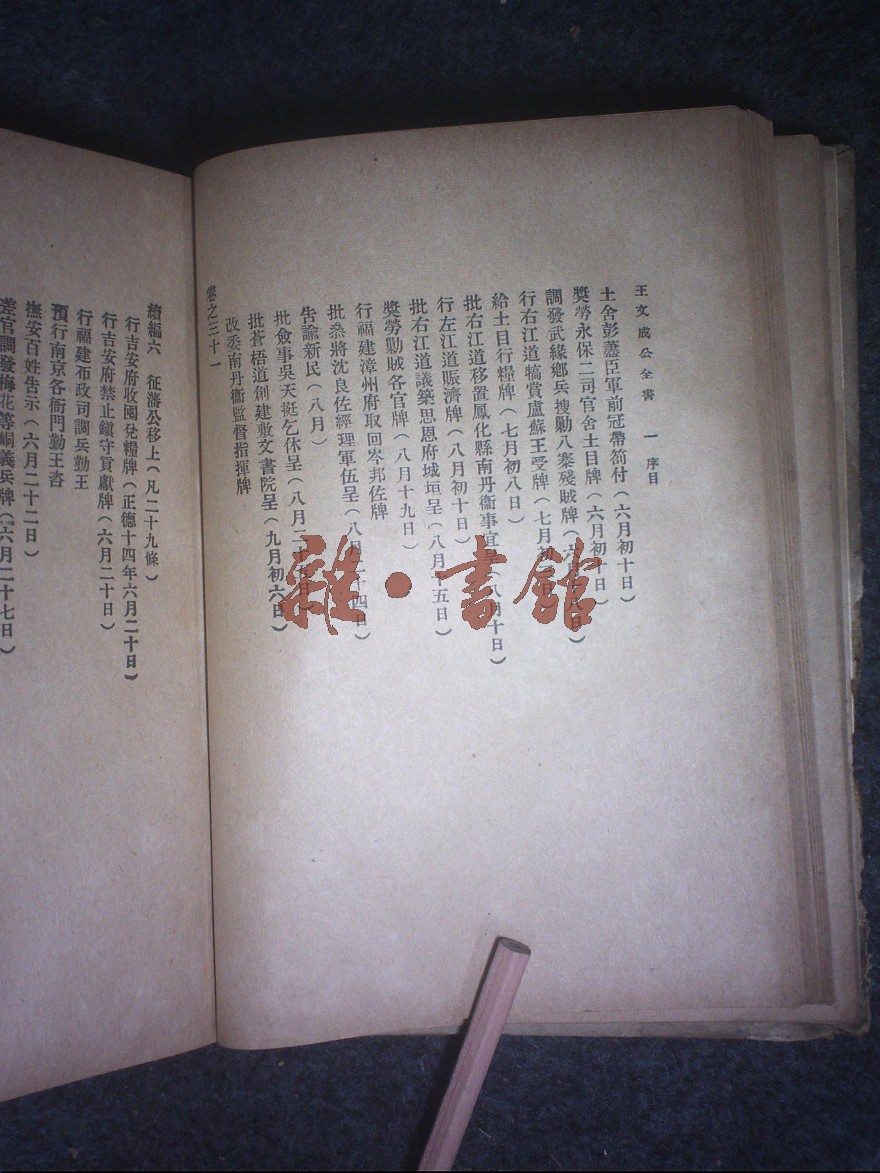 王文成公全書 一 序目
土舍彭藎臣軍前冠帶箚付（六月初十日）
獎勞永保二司官舍土目牌（六月初十日）
調發武緣鄉兵搜勦八寨殘賊牌（六月 八日）
行右江道犒賞盧蘇王受牌（七月初 日）
給土目行糧牌（七月初八日）
批右江道移置鳳化縣南丹衞事宜呈（八月十日）
行左江道賑濟牌（八月初十日）
批右江道議築思恩府城垣呈（八月十五日）
獎勞勦賊各官牌（八月十九日）
行福建漳州府取回岑邦佐牌
批叅將沈良佐經理軍伍呈（八月二十四日）
告諭新民（八月）
批僉事吳天挺乞休呈（八月二十 日）
批蒼梧道創建敷文書院呈（九月初六日）
改委南丹衞監督指揮牌
卷之三十一
續編六 征藩公移上（凡二十九條）
行吉安府收囤兌糧牌（正德十四年六月二十日）
行吉安府禁止鎭守貢獻牌（六月二十日）
行福建布政司調兵勤王
預行南京各衙門勤王咨
撫安百姓告示（六月二十二日）
差官調發梅花等峒義兵牌（六月二十七日）
雜·書館